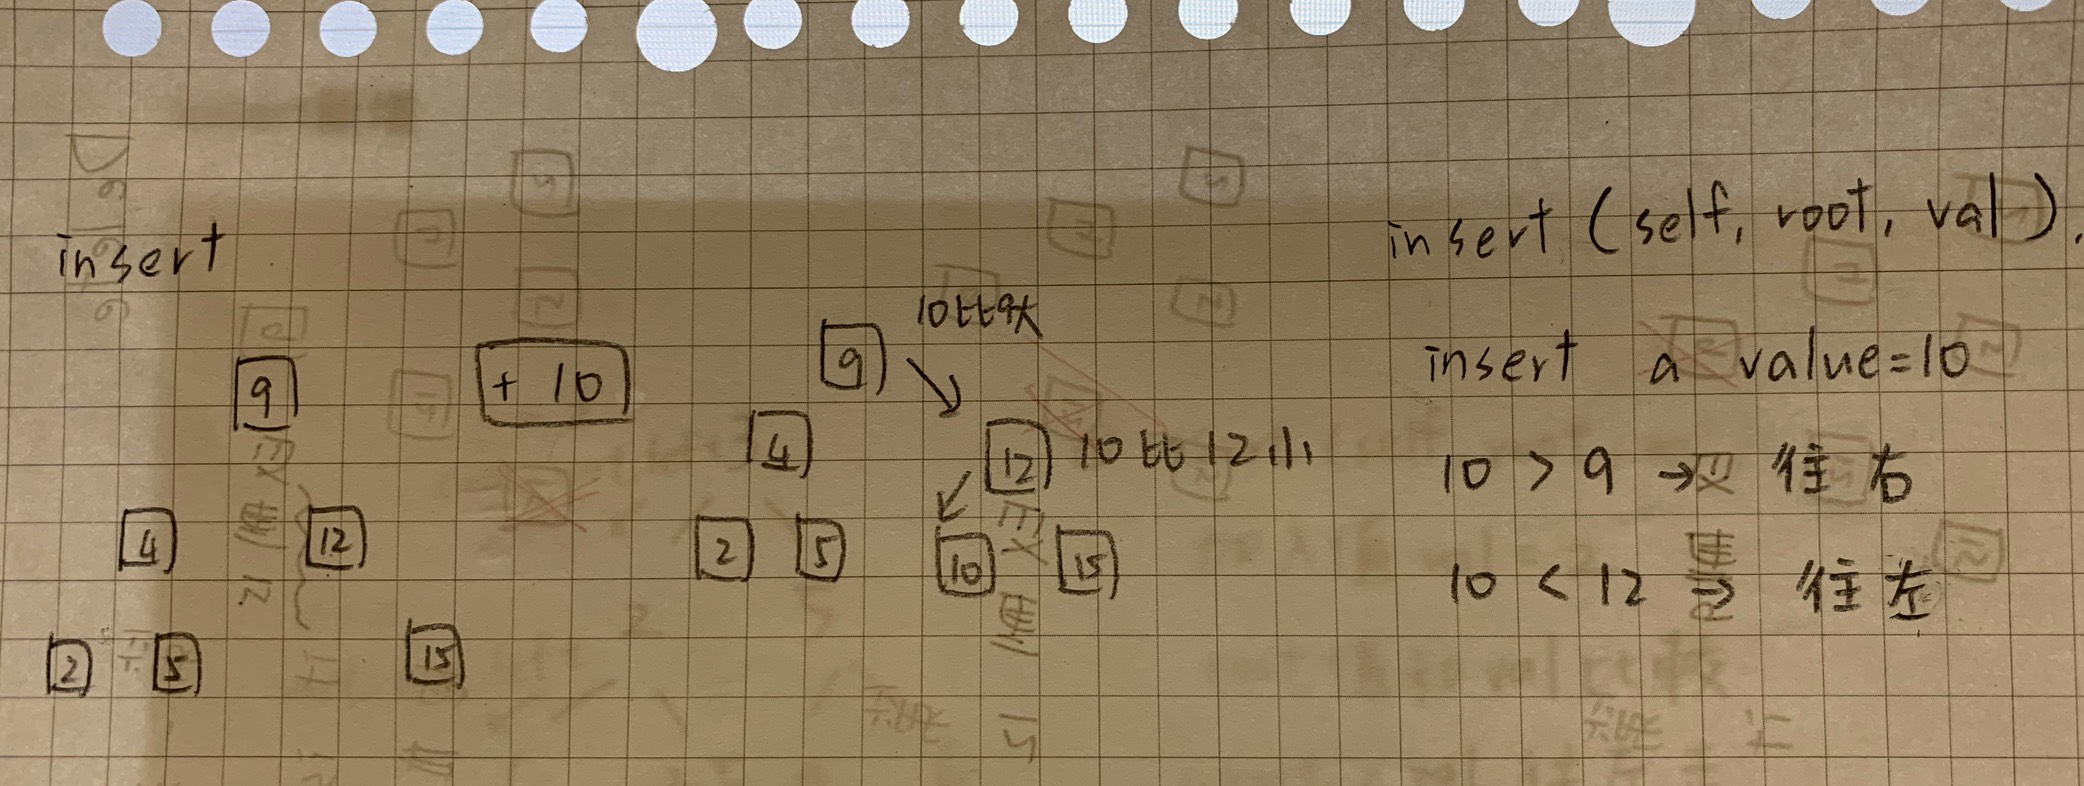 insert
9
4 12
2 5 15
+ 10
10比9大
9
4 12 10比12小
2 5 10 15
insert (self, root, val).
insert a value=10
10 > 9 → 往右
10 < 12 → 往左